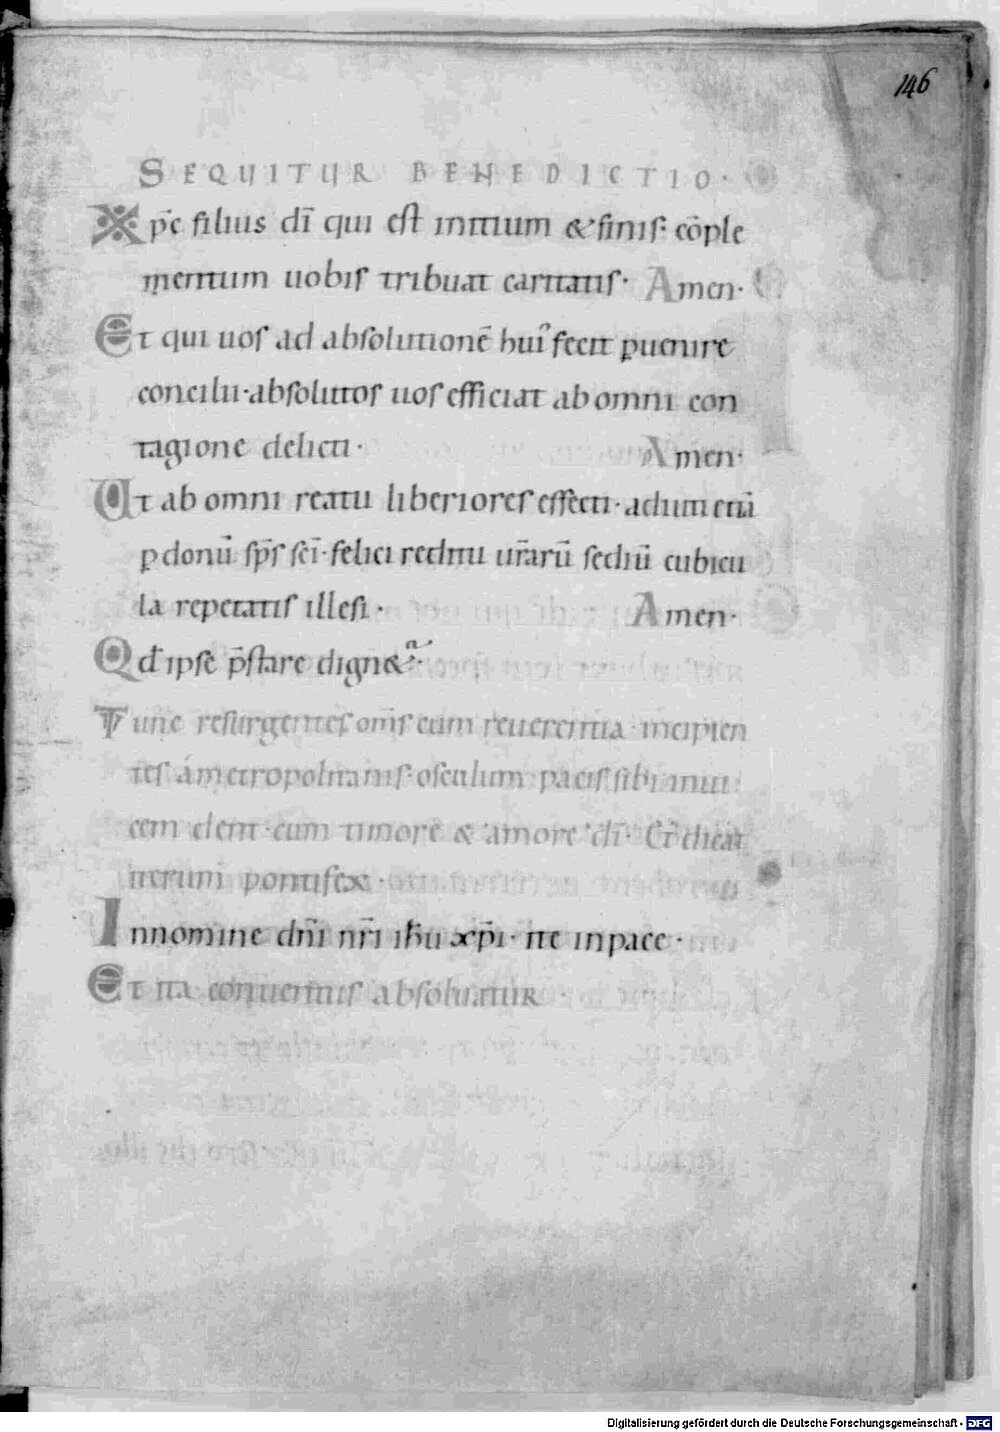 146
SEQUITUR BENEDICTIO·
Xp̄c filius dī qui est initium & finis· cōple
mentum uobis tribuat caritatis· Amen·
Et qui uos ad absolutionē hui' fecit puenire
concilii· absolutos uos efficiat ab omni con
tagione delicti· Amen·
Ut ab omni reatu liberiores effecti· adiuti etiā
p donū sp̄s scī· felici reditu ur̄arū sediū cubicu
la repetatis illesi· Amen·
Qd ipse p̄stare dignet̃·
Tunc resurgentes om̄s cum reuerentia· incipien
tes á metropolitanis· osculum pacis sibi inui
cem dent· cum timore & amore dī· Et dicat
iterum pontifex·
In nomine dn̄i nr̄i ih̄u xp̄i· ite in pace·
Et ita conuentus absoluatur·
Digitalisierung gefördert durch die Deutsche Forschungsgemeinschaft - DFG